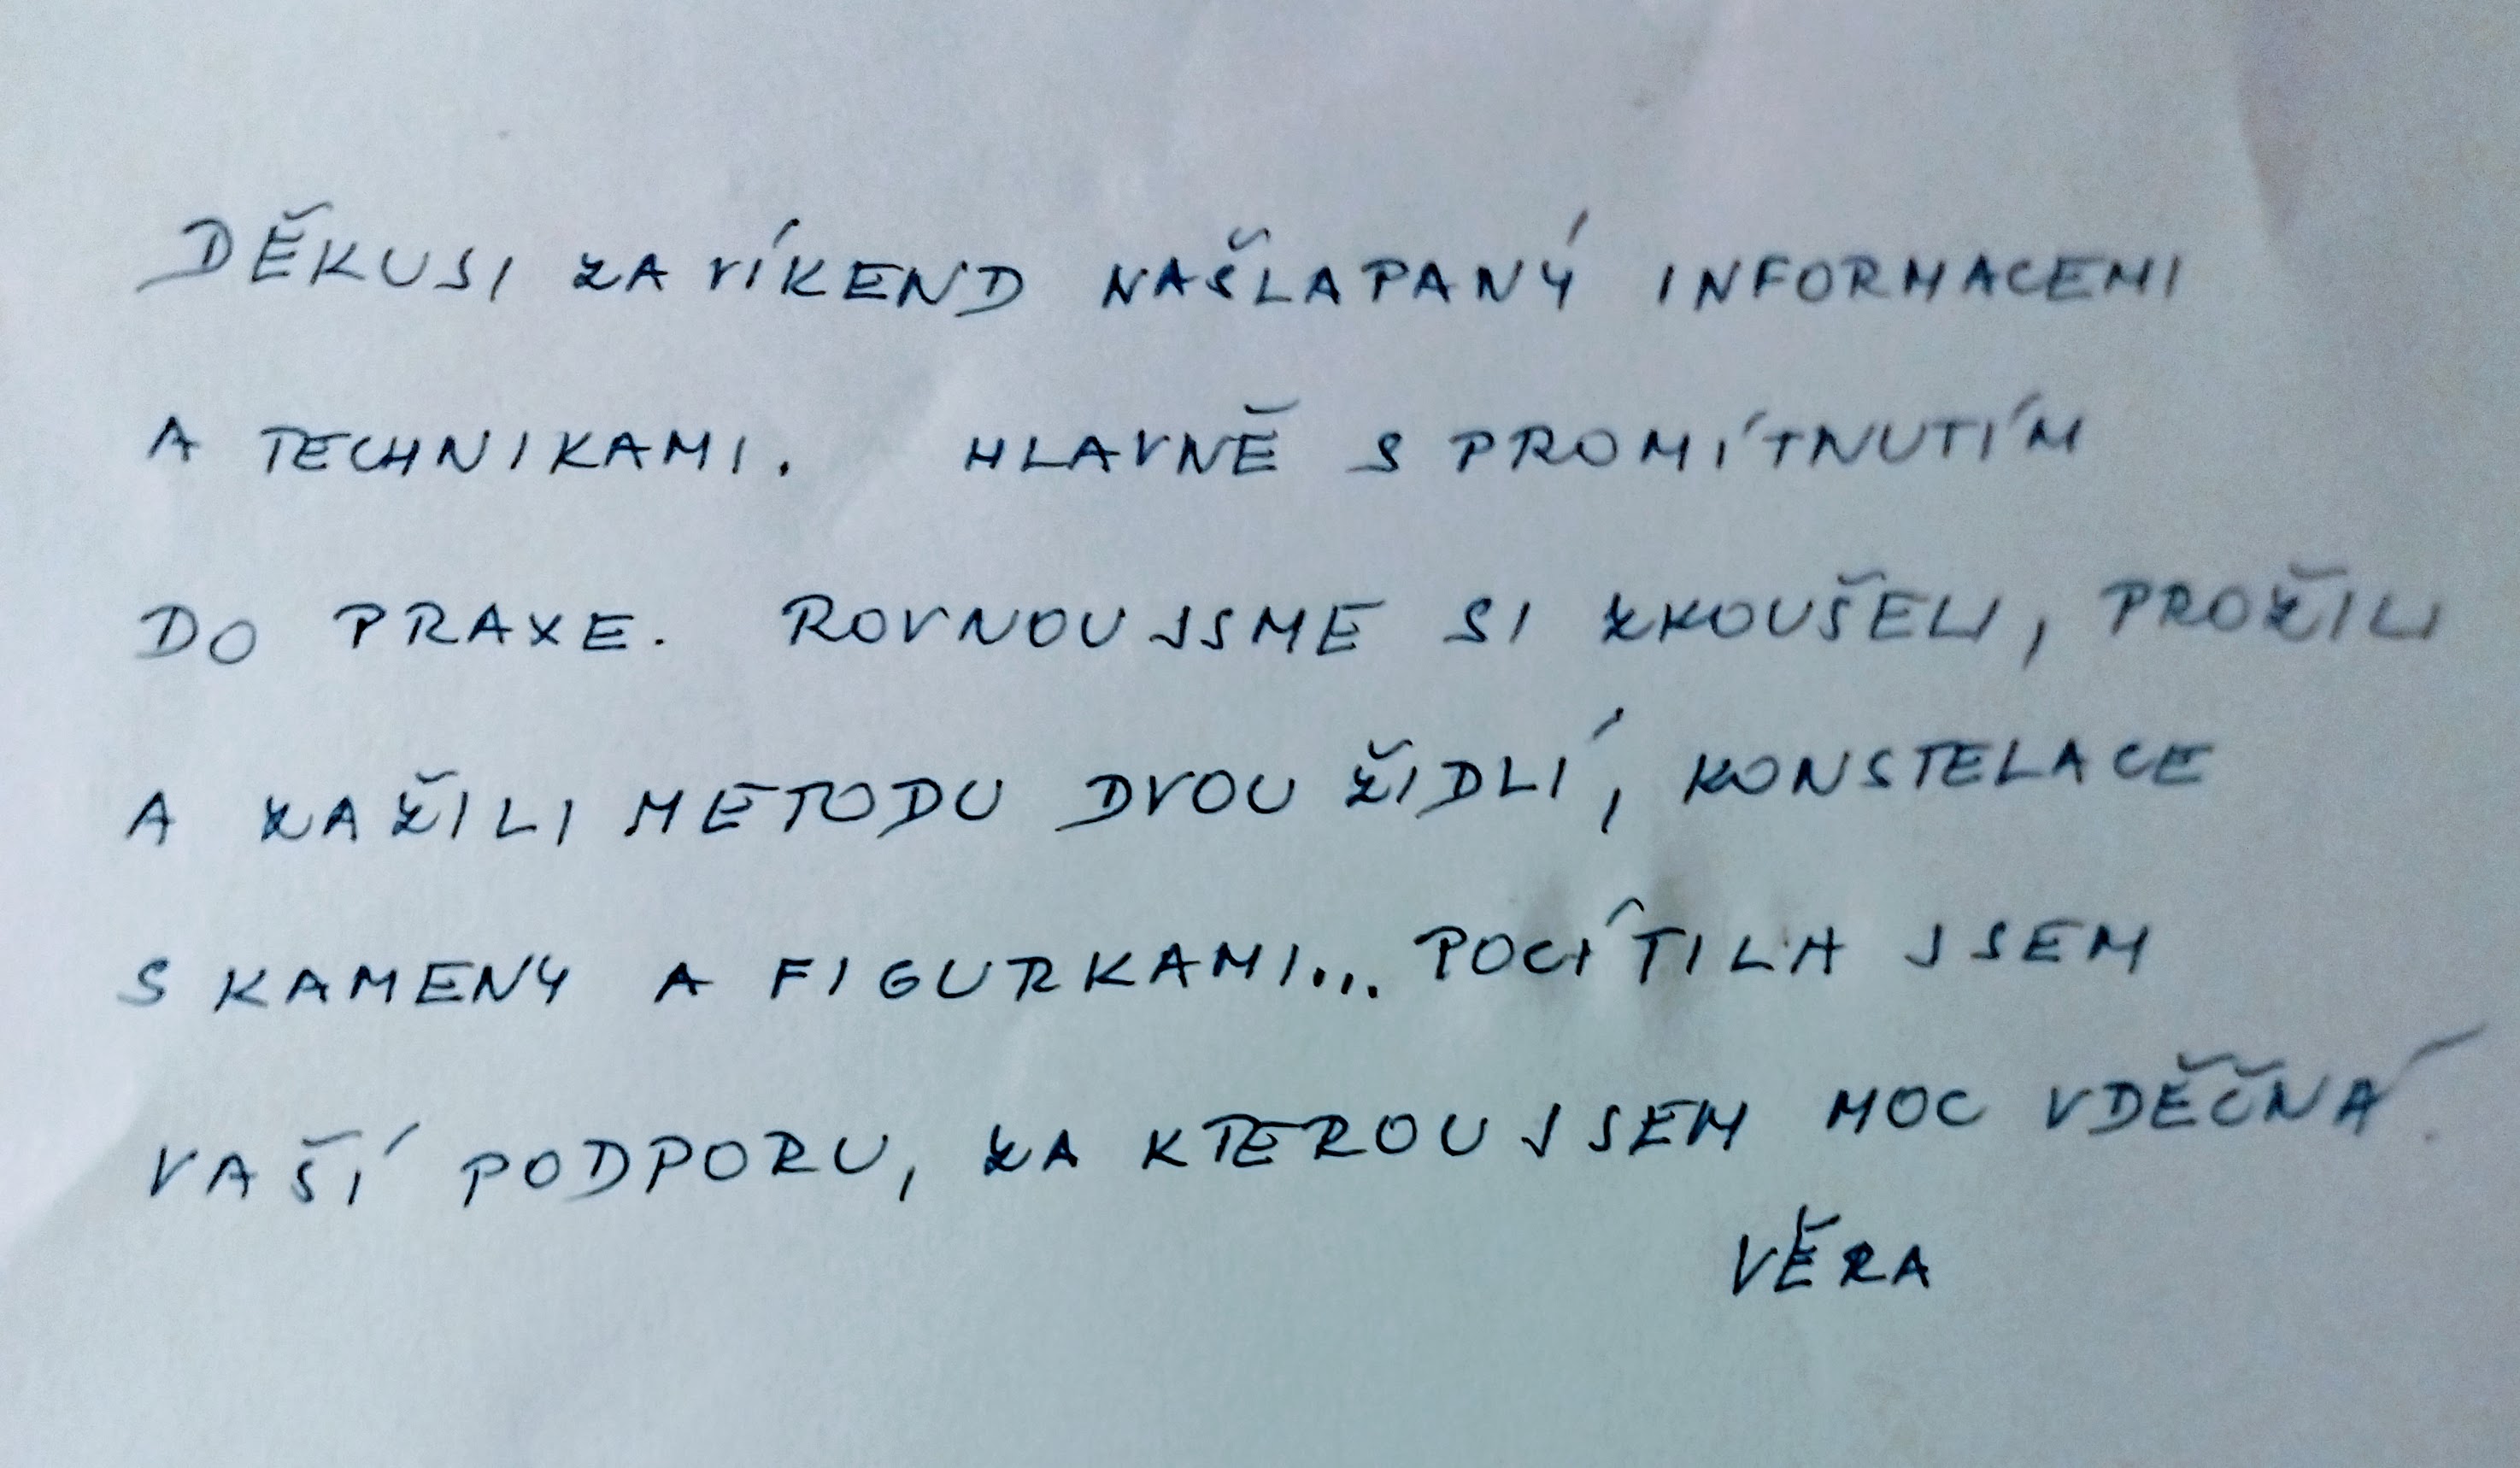 DĚKUJI ZA VÍKEND NAŠLAPANÝ INFORMACEMI
A TECHNIKAMI. HLAVNĚ S PROMÍTNUTÍM
DO PRAXE. ROVNOU JSME SI ZKOUŠELI, PROŽILI
A ZAŽILI METODU DVOU ŽIDLÍ, KONSTELACE
S KAMENY A FIGURKAMI... POCÍTILA JSEM
VAŠÍ PODPORU, ZA KTEROU JSEM MOC VDĚČNÁ.
VĚRA